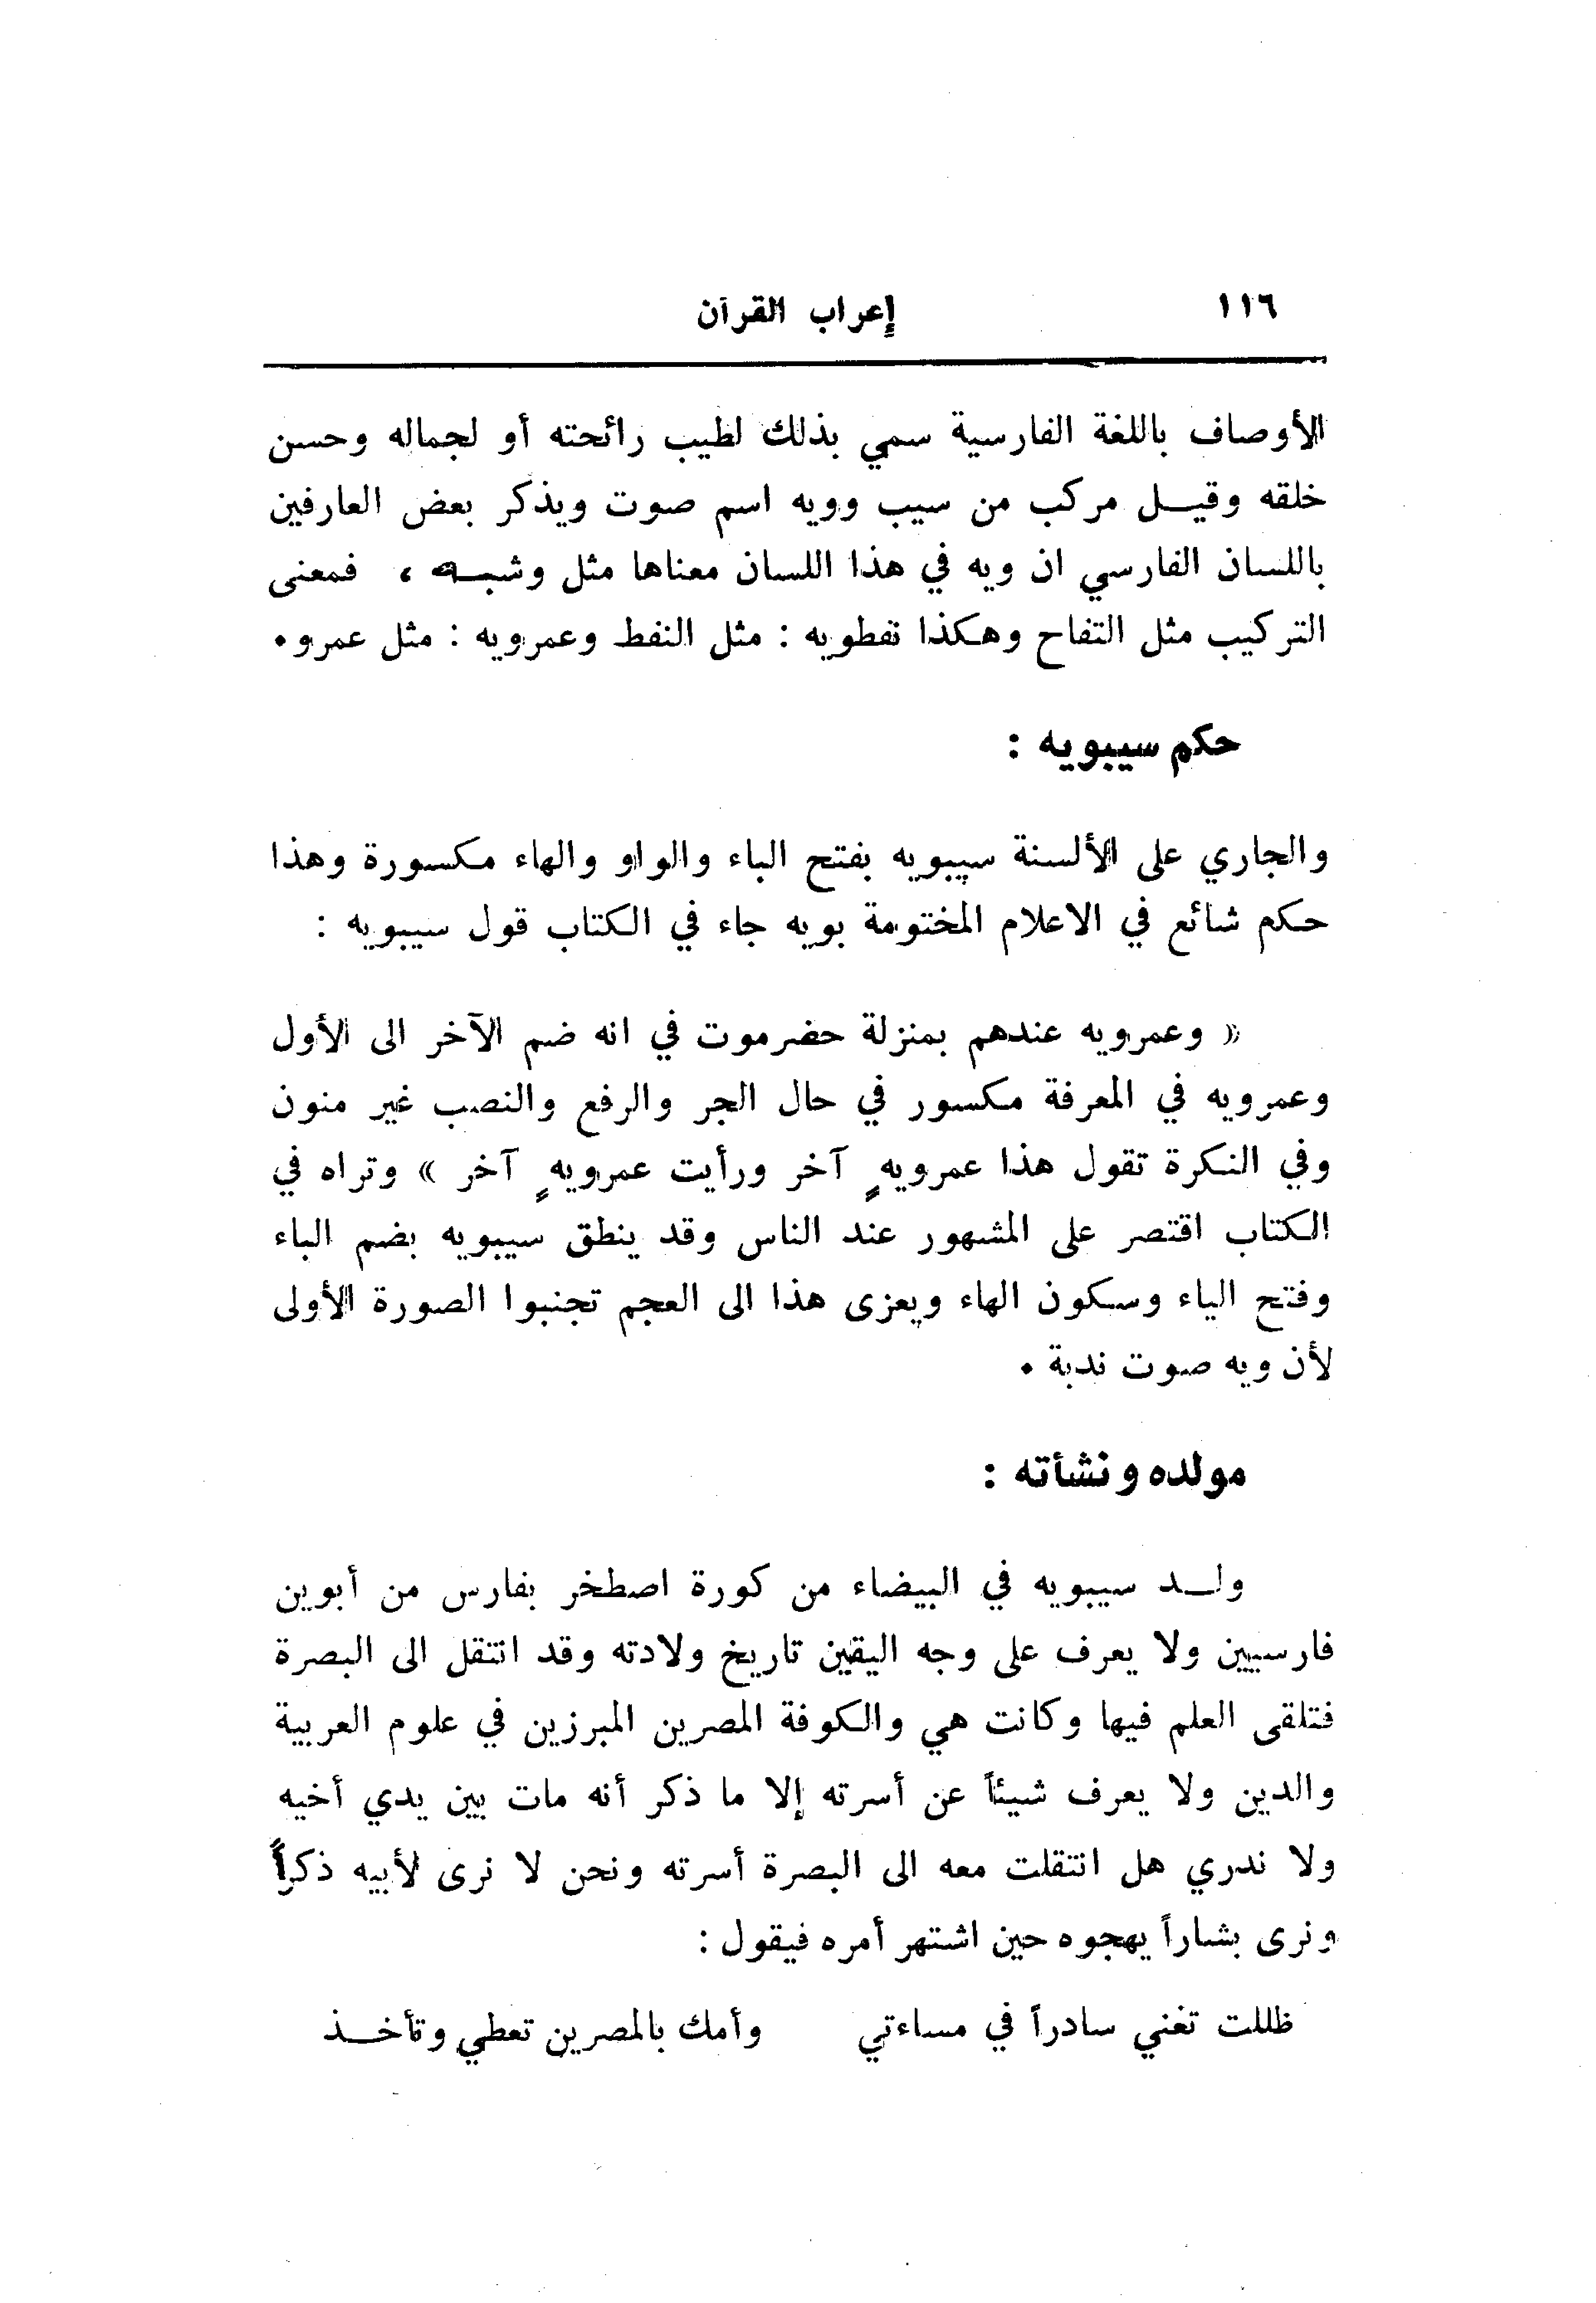 ١١٦ إعراب القرآن
الأوصاف باللغة الفارسية سمي بذلك لطيب رائحته أو لجماله وحسن
خلقه وقيل مركب من سيب وويه اسم صوت ويذكر بعض العارفين
باللسان الفارسي ان ويه في هذا اللسان معناها مثل وشبه ، فمعنى
التركيب مثل التفاح وهكذا نفطويه : مثل النفط وعمرويه : مثل عمرو.
حكم سيبويه :
والجاري على الألسنة سيبويه بفتح الباء والواو والهاء مكسورة وهذا
حكم شائع في الاعلام المختومة بويه جاء في الكتاب قول سيبويه :
« وعمرويه عندهم بمنزلة حضرموت في انه ضم الآخر الى الأول
وعمرويه في المعرفة مكسور في حال الجر والرفع والنصب غير منون
وفي النكرة تقول هذا عمرويهٍ آخر ورأيت عمرويهٍ آخر » وتراه في
الكتاب اقتصر على المشهور عند الناس وقد ينطق سيبويه بضم الباء
وفتح الياء وسكون الهاء ويعزى هذا الى العجم تجنبوا الصورة الأولى
لأن ويه صوت ندبة .
مولده ونشأته :
ولد سيبويه في البيضاء من كورة اصطخر بفارس من أبوين
فارسيين ولا يعرف على وجه اليقين تاريخ ولادته وقد انتقل الى البصرة
فتلقى العلم فيها وكانت هي والكوفة المصرين المبرزين في علوم العربية
والدين ولا يعرف شيئاً عن أسرته إلا ما ذكر أنه مات بين يدي أخيه
ولا ندري هل انتقلت معه الى البصرة أسرته ونحن لا نرى لأبيه ذكراً
ونرى بشاراً يهجوه حين اشتهر أمره فيقول :
ظللت تغني سادراً في مساءتي وأمك بالمصرين تعطي وتأخذ